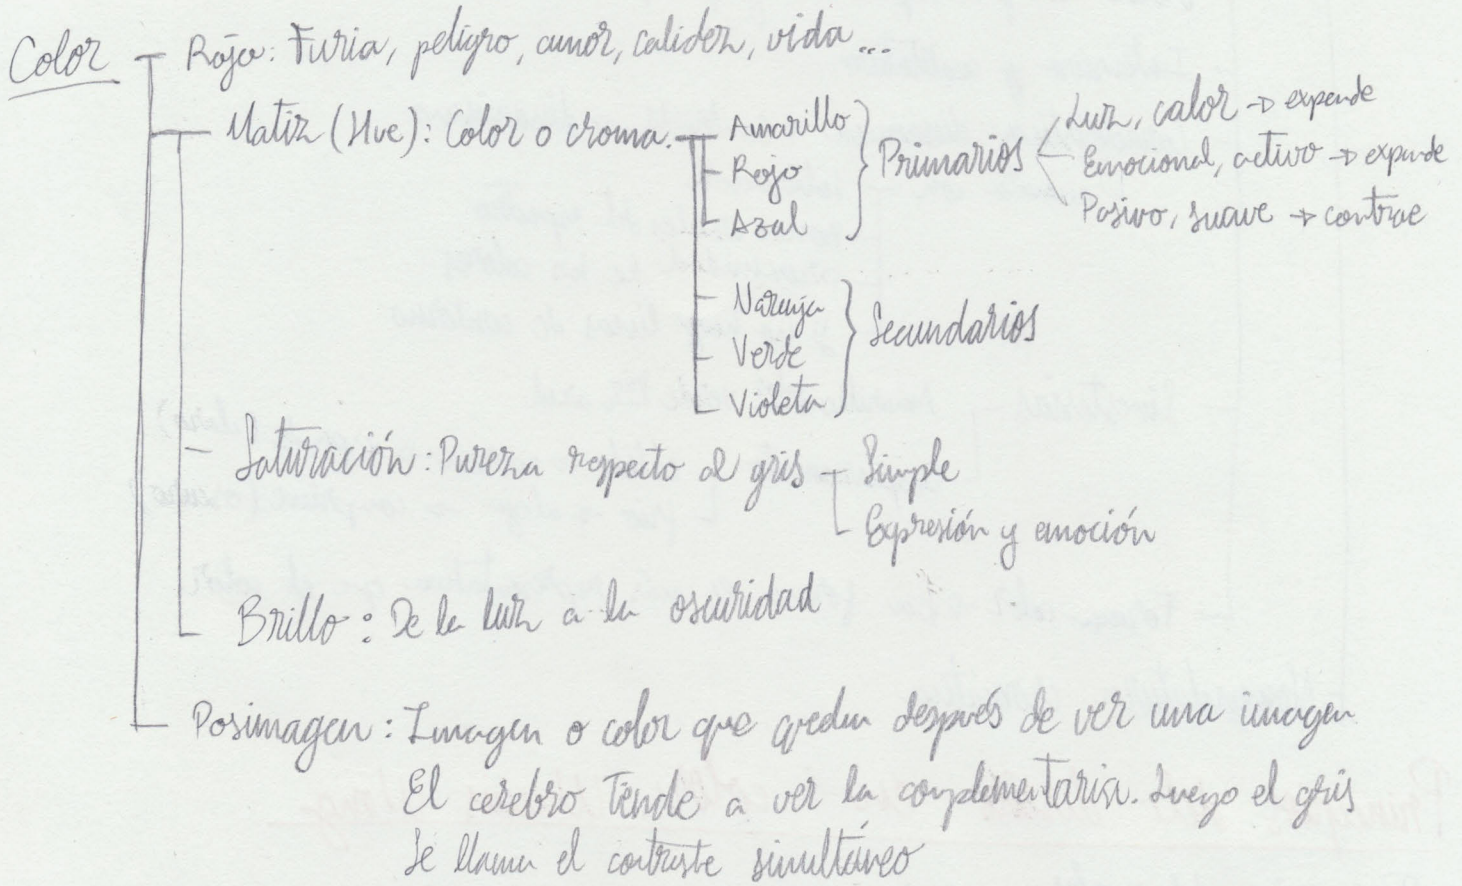 Color
Rojo: Furia, peligro, amor, calidez, vida...
Matiz (Hue): Color o croma.
Amarillo
Rojo
Azul
Primarios
Luz, calor → expande
Emocional, activo → expande
Pasivo, suave → contrae
Naranja
Verde
Violeta
Secundarios
Saturación: Pureza respecto al gris
Simple
Expresión y emoción
Brillo: De la luz a la oscuridad
Posimagen: Imagen o color que queda después de ver una imagen
El cerebro tiende a ver la complementaria. Luego el gris
Se llama el contraste simultáneo